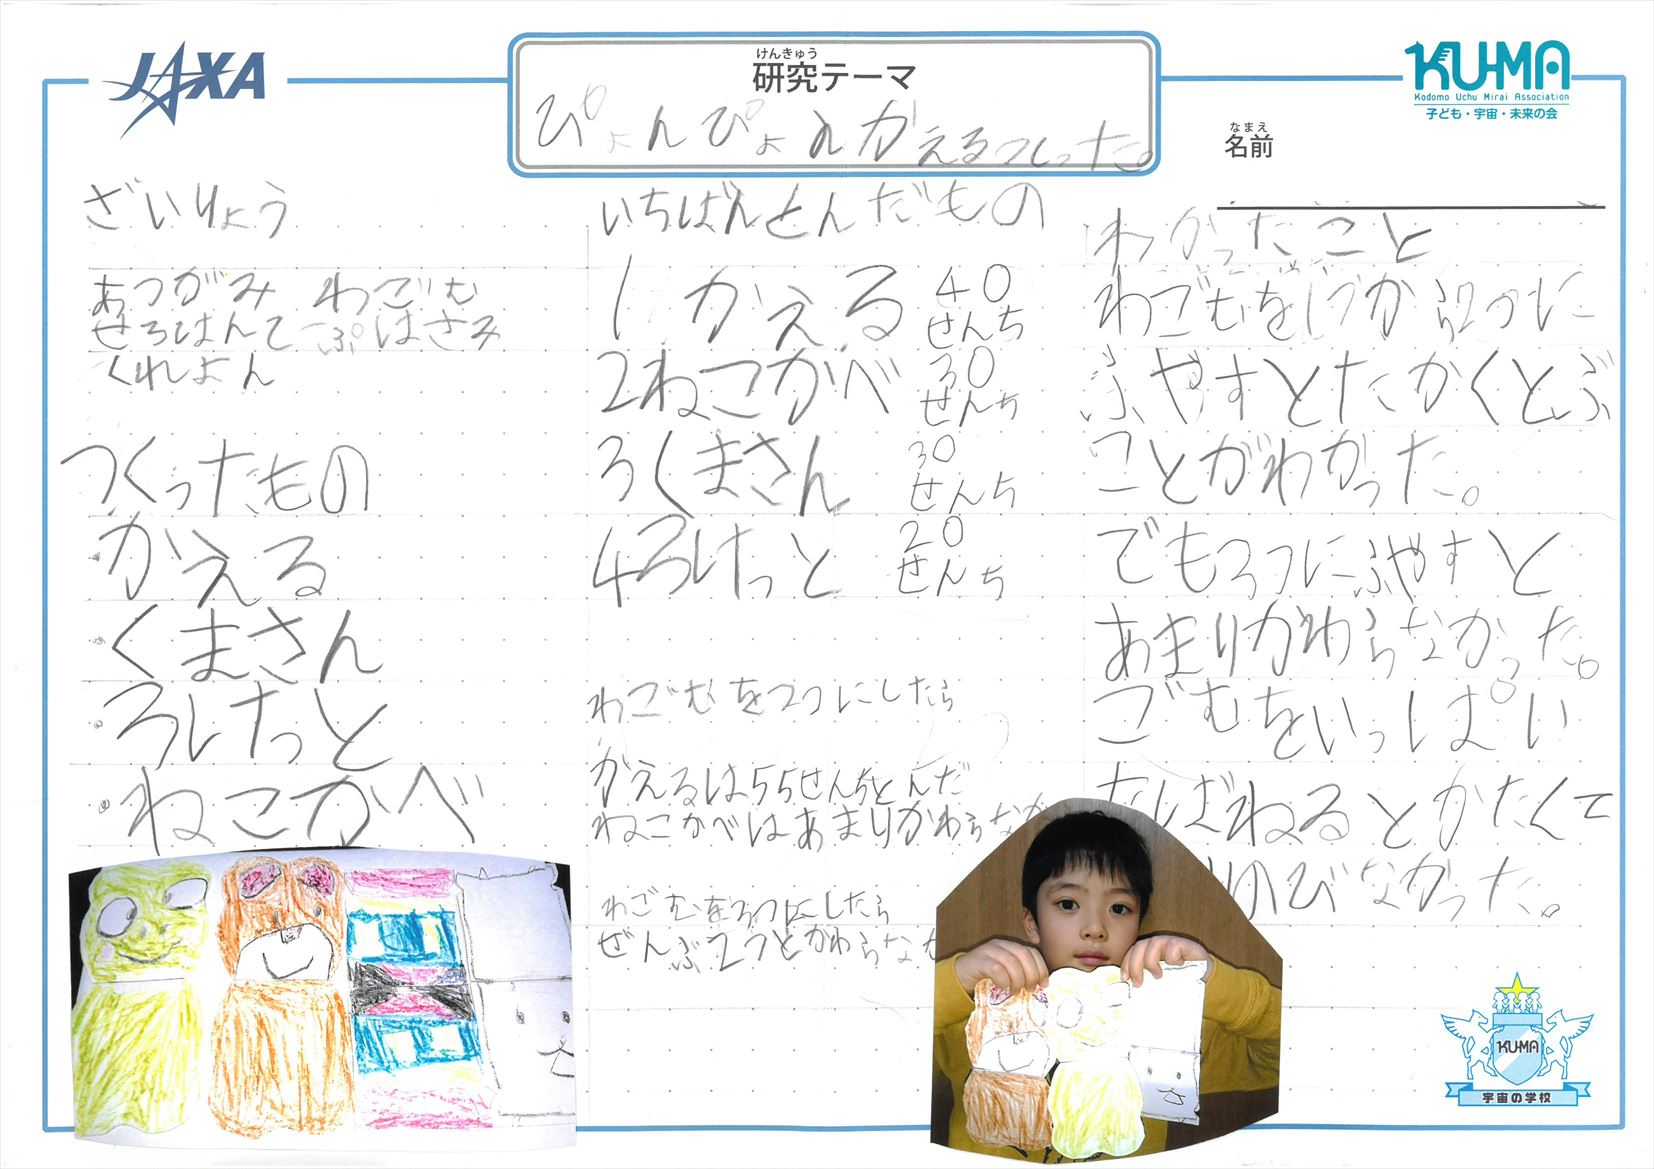 JAXA
けんきゅう
研究テーマ
ぴょんぴょんかえるつくった。
KU-MA
Kodomo Uchu Mirai Association
子ども・宇宙・未来の会
なまえ
名前
ざいりょう
あつがみ わごむ
せろはんてーぷ はさみ
くれよん
つくったもの
・かえる
・くまさん
・ろけっと
・ねこかべ
いちばんとんだもの
1 かえる 40せんち
2 ねこかべ 30せんち
3 くまさん 30せんち
4 ろけっと 20せんち
わごむを2つにしたら
かえるは55せんちとんだ
ねこかべはあまりかわらなか
わごむを3つにしたら
ぜんぶ2つとかわらな
わかったこと
わごむを1つから2つに
ふやすとたかくとぶ
ことがわかった。
でも3つにふやすと
あまりかわらなかった。
ごむをいっぱい
たばねるとかたくて
のびなかった。
KU-MA
宇宙の学校